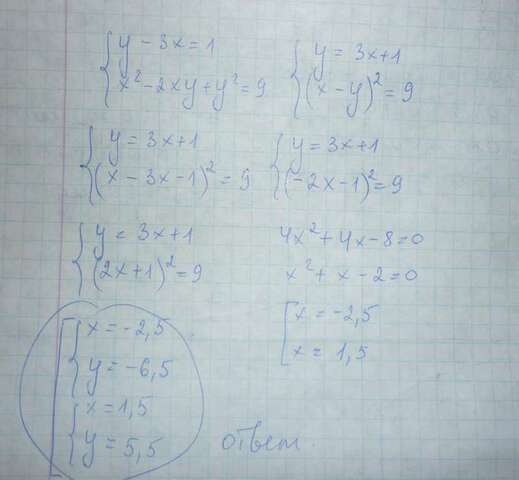 { y - 3x = 1
x² - 2xy + y² = 9
{ y = 3x+1
(x - y)² = 9
{ y = 3x+1
(x - 3x - 1)² = 9
{ y = 3x+1
(-2x-1)² = 9
{ y = 3x+1
(2x+1)² = 9
4x² + 4x - 8 = 0
x² + x - 2 = 0
[ x = -2,5
x = 1,5
[ { x = -2,5
y = -6,5
{ x = 1,5
y = 5,5
ответ.